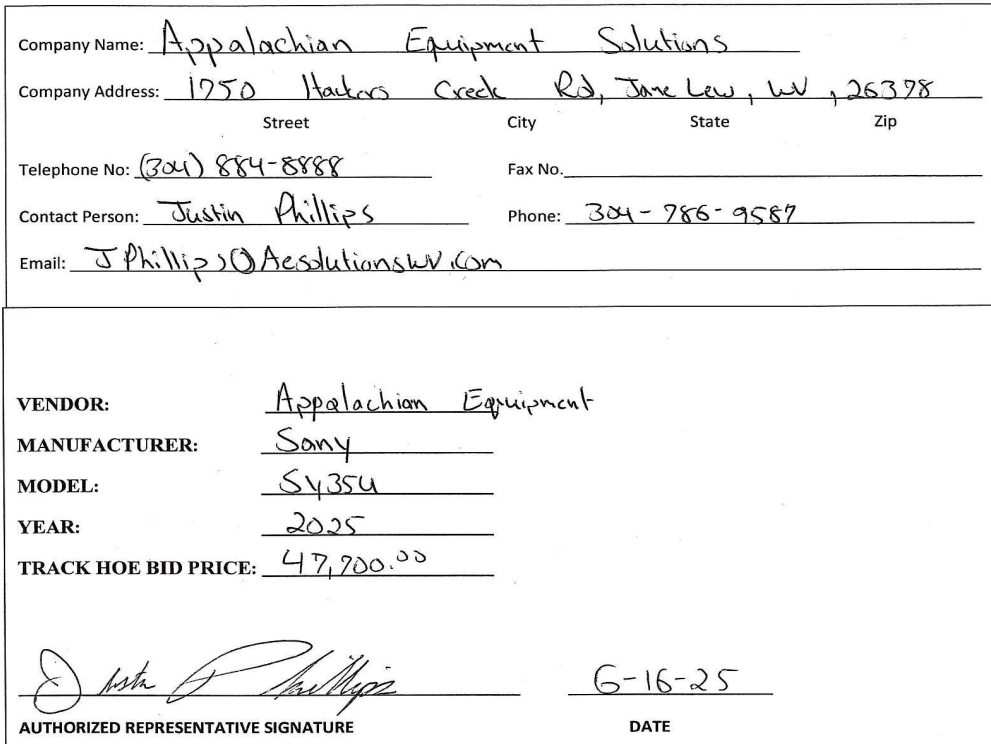 Company Name: Appalachian Equipment Solutions
Company Address: 1750 Hackers Creek Rd, Jane Lew, WV, 26378
Street City State Zip
Telephone No: (304) 884-8888 Fax No.
Contact Person: Justin Phillips Phone: 304-786-9587
Email: JPhillips@Aesolutionswv.com
VENDOR: Appalachian Equipment
MANUFACTURER: Sany
MODEL: SY35U
YEAR: 2025
TRACK HOE BID PRICE: 47,700.00
Justin Phillips 6-16-25
AUTHORIZED REPRESENTATIVE SIGNATURE DATE